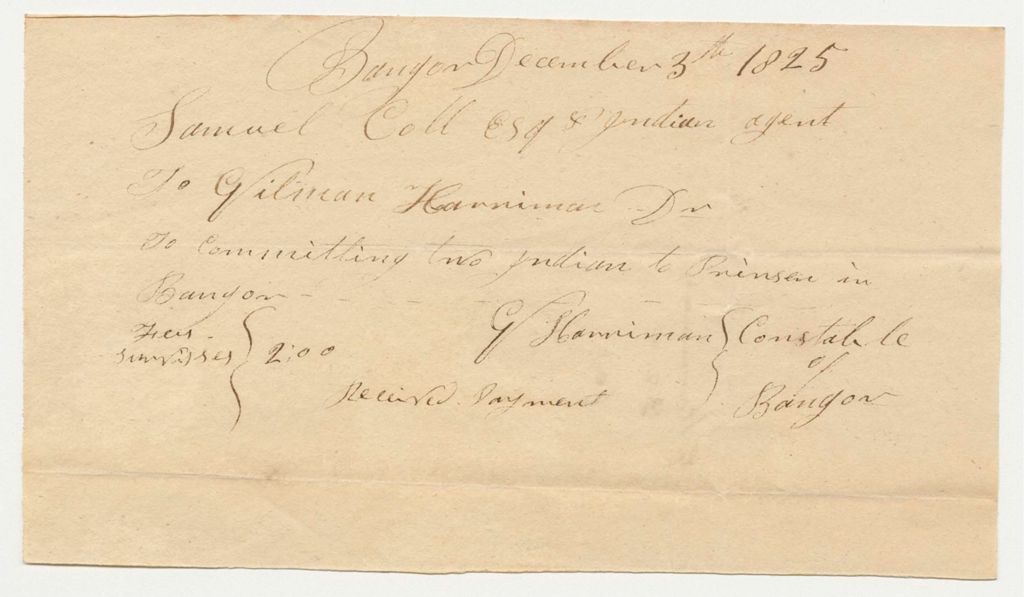 Bangor December 3th 1825
Samuel Coll Esq & Indian agent
To Gilman Harriman Dr
To Committing two Indian to Prinsen in
Bangor
Fees
Survisses } 2:00
G Harriman } Constable
of
Bangor
Received Payment